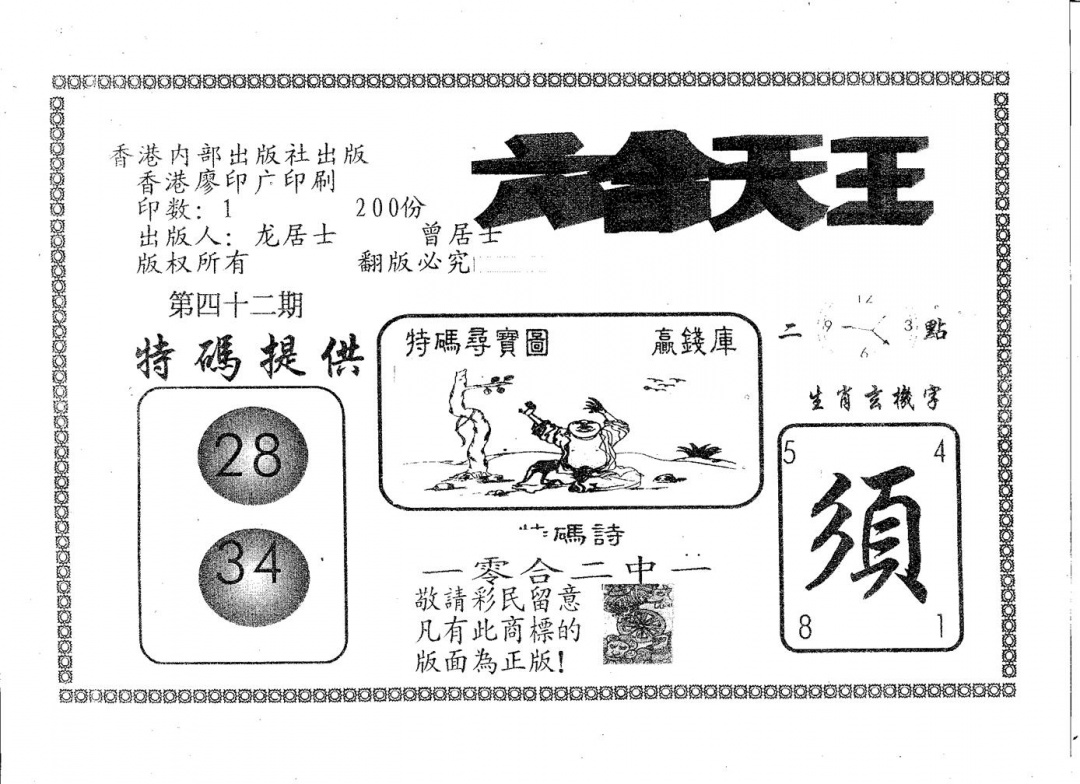 六合天王
香港内部出版社出版
香港廖印广印刷
印数：1 200份
出版人：龙居士 曾居士
版权所有 翻版必究
第四十二期
特碼提供
28
34
特碼尋寶圖 贏錢庫
特碼詩
一零合二中一
敬請彩民留意
凡有此商標的
版面為正版！
二 點
12
9 3
6
生肖玄機字
5 4
須
8 1